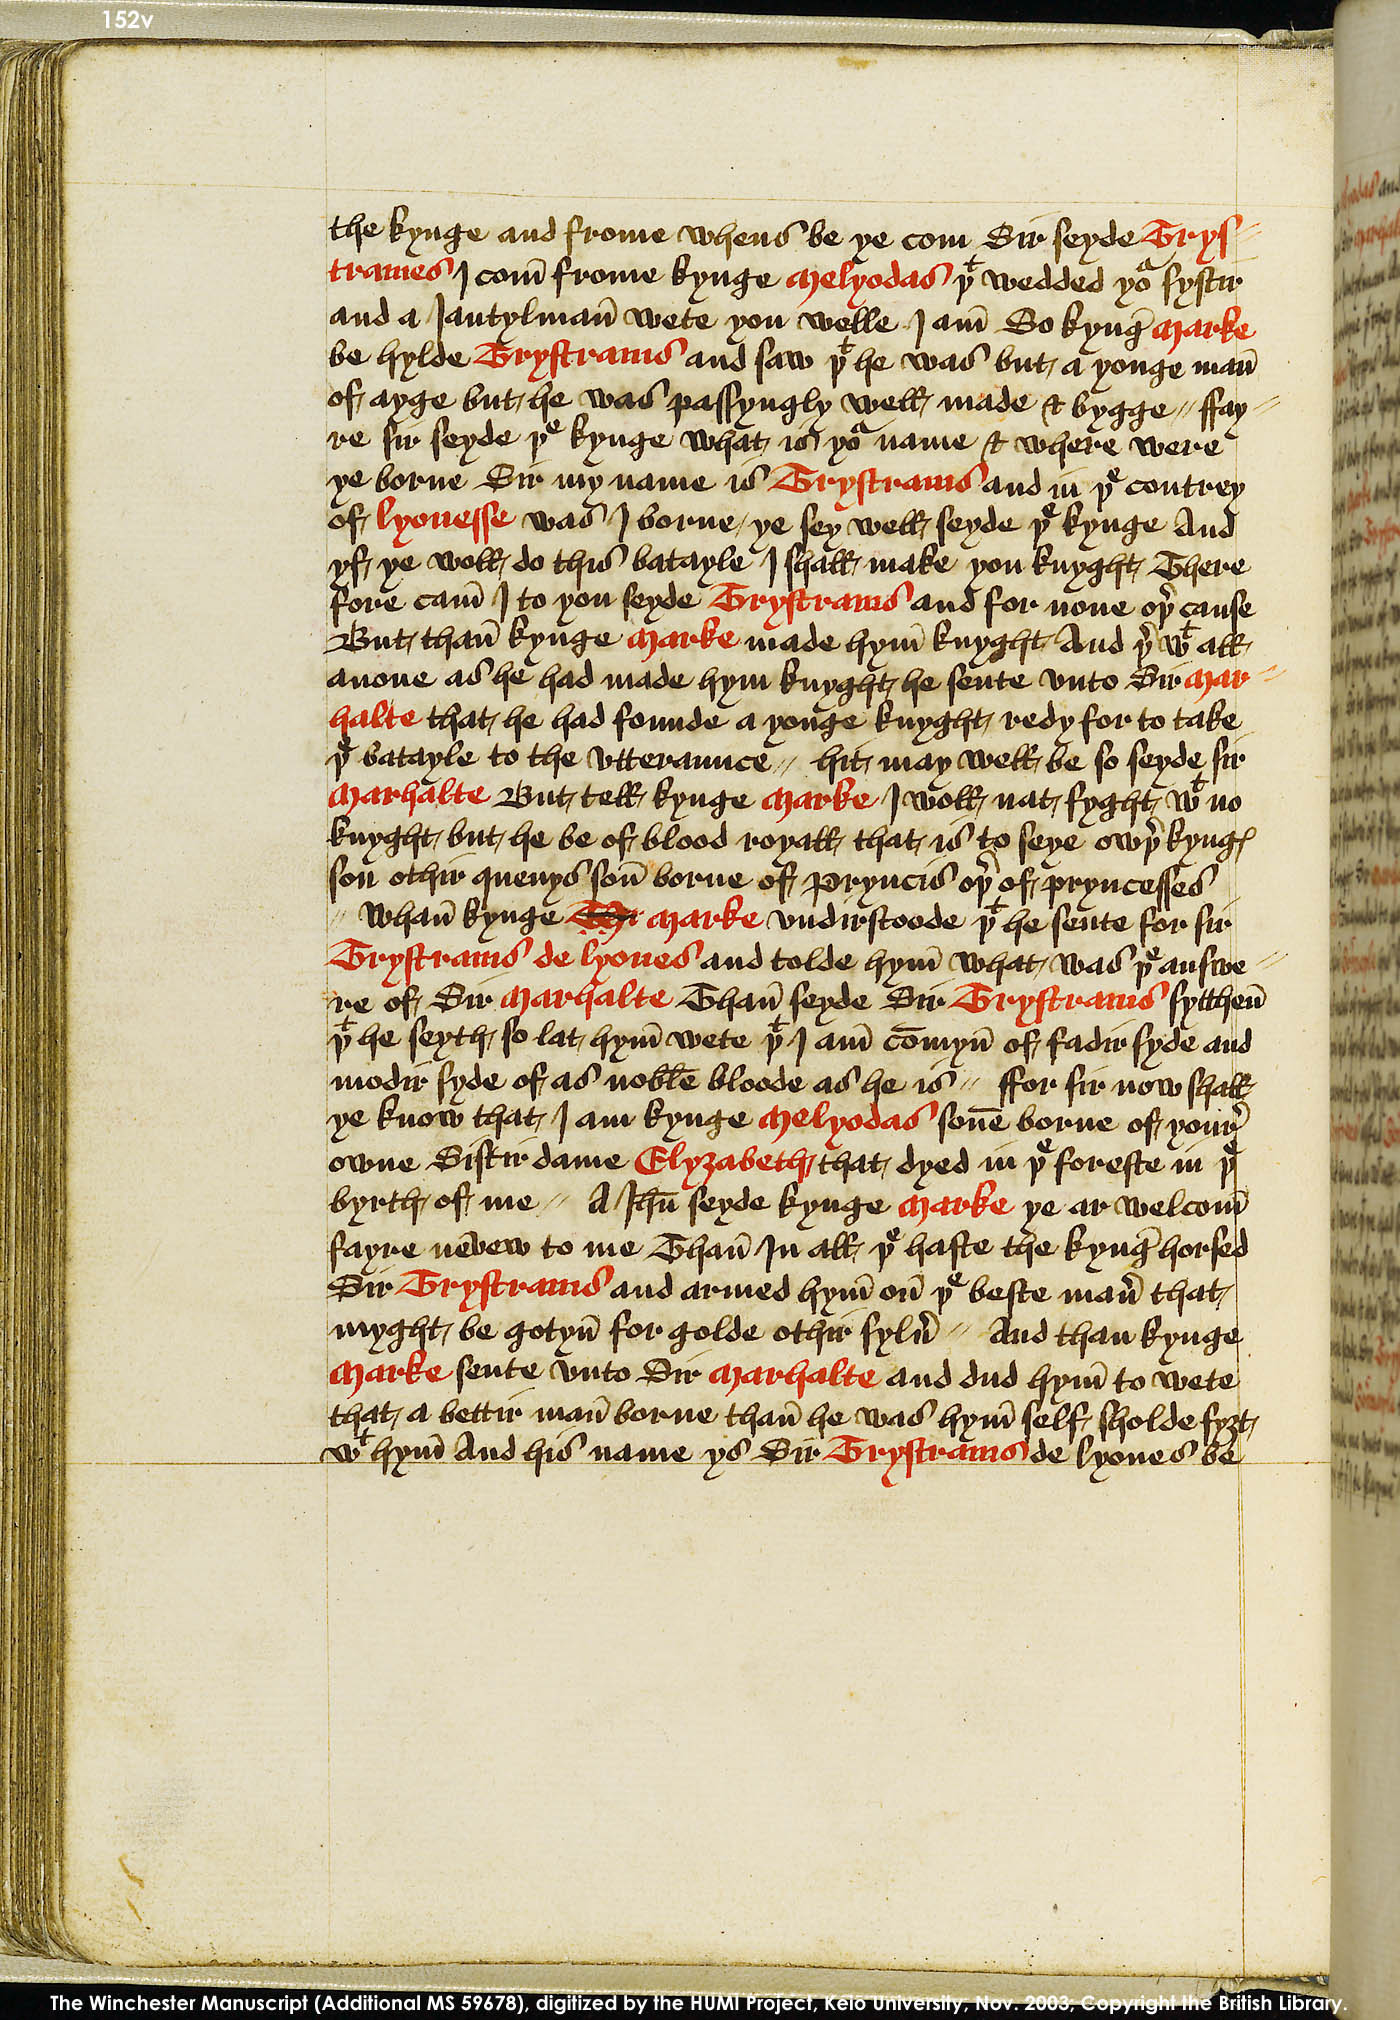 152v
the kynge and frome whens be ye com Sir seyde Trys⸗
trames I com̄ frome kynge Melyodas þͭ wedded yoͬ systir
and a Jantylman̄ wete you welle I am̄ So kynḡ Marke
be hylde Trystrams and saw þͭ he was but a yonge man̄
of ayge but he was passyngly well made & bygge⸗ ffay⸗
re sir seyde þͤ kynge what is yoͬ name & where were
ye borne Sir my name is Trystrams and in þͤ contrey
of lyonesse was I borne / ye sey well seyde þͤ kynge And
yf ye woll do this batayle I shall make you knyght There
fore cam̄ I to you seyde Trystrams and for none oþ̉ cause
But than̄ kynge Marke made hym̄ knyght And þ̉ wͭ all
anone as he had made hym knyght he sente vnto Sir Mar⸗
halte that he had founde a yonge knyght redy for to take
þͤ batayle to the vtteraunce⸗ hit may well be so seyde sir
Marhalte But tell kynge Marke I woll nat fyght wͭ no
knyght but he be of blood royall that is to seye owþ̉ kyngꝭ
son othir quenys son̄ borne of Pryncis oþ̉ of pryncesses
⸗ Whan̄ kynge Marke vndirstoode þͭ he sente for sir
Trystrams de lyones and tolde hym̄ what was þͤ answe⸗
re of Sir Marhalte Than̄ seyde Sir Trystrams sytthen̄
þͭ he seyth so lat hym̄ wete þͭ I am̄ com̄yn̄ of fadir syde and
modir syde of as noble bloode as he is⸗ ffor sir now shall
ye know that I am kynge Melyodas son̄e borne of your̉
owne Sistir dame Elyzabeth that dyed in þͤ foreste in þͤ
byrth of me⸗ A Jhū seyde kynge Marke ye ar welcom̄
fayre nevew to me Than̄ In all þͤ haste the kynḡ horsed
Sir Trystrams and armed hym̄ on̄ þͤ beste man̉ that
myght be gotyn̄ for golde othir sylủ⸗ And than kynge
Marke sente vnto Sir Marhalte and dud hym̄ to wete
that a bettir man̄ borne than̄ he was hym̄ self sholde fyȝt
wͭ hym̄ And his name ys Sir Trystrams de lyones be
The Winchester Manuscript (Additional MS 59678), digitized by the HUMI Project, Keio University, Nov. 2003; Copyright the British Library.